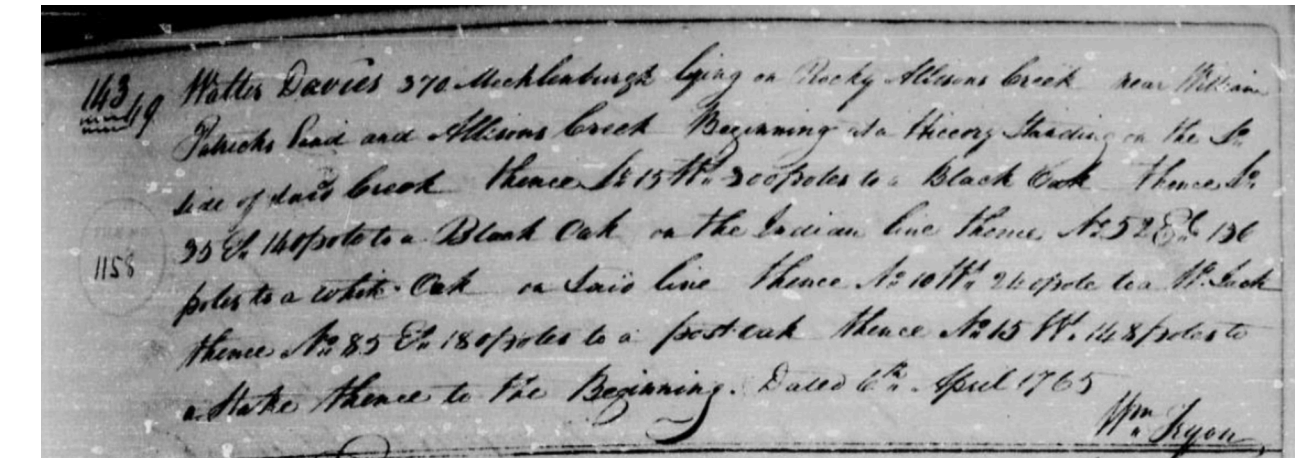 143
49
Walter Davies 370 Mecklenburgh lying on Rocky Allisons Creek near William
Patricks Land and Allisons Creek Beginning at a Hiccory Standing on the So
side of said Creek thence So 15 Wt 300 poles to a Black Oak thence So
35 Et 140 pole to a Black Oak on the Indian line thence No 52 Et 136
poles to a white Oak on said line thence No 10 Wt 240 pole to a Bl. Jack
thence No 85 Et 180 poles to a post oak thence No 15 Wt 148 poles to
a Stake thence to the Beginning. Dated 6th April 1765
Wm Tryon
1158